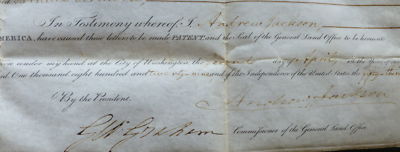 In Testimony whereof, I, Andrew Jackson
AMERICA, have caused these letters to be made PATENT, and the Seal of the General Land Office to be hereunto
under my hand at the City of Washington the day of in the
One thousand eight hundred and twenty nine and of the Independence of the United States the fifty third
By the President:
Andrew Jackson
G. W. Graham
Commissioner of the General Land Office